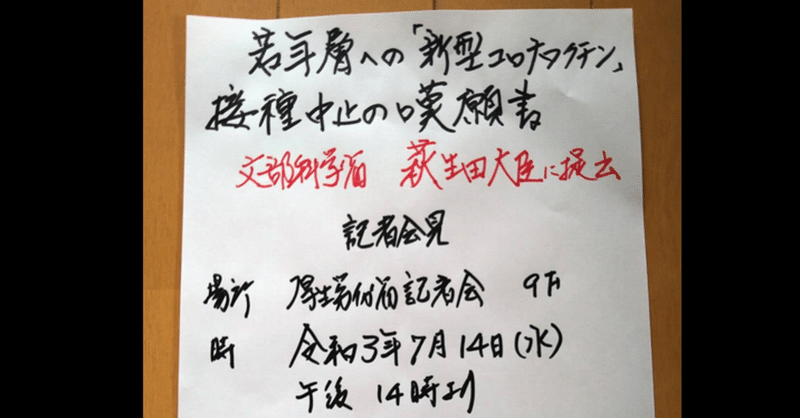 若年層への「新型コロナワクチン」
接種中止の嘆願書
文部科学省 萩生田大臣に提出
記者会見
場所 厚生労働省記者会 9F
時 令和3年7月14日(水)
午後 14時より